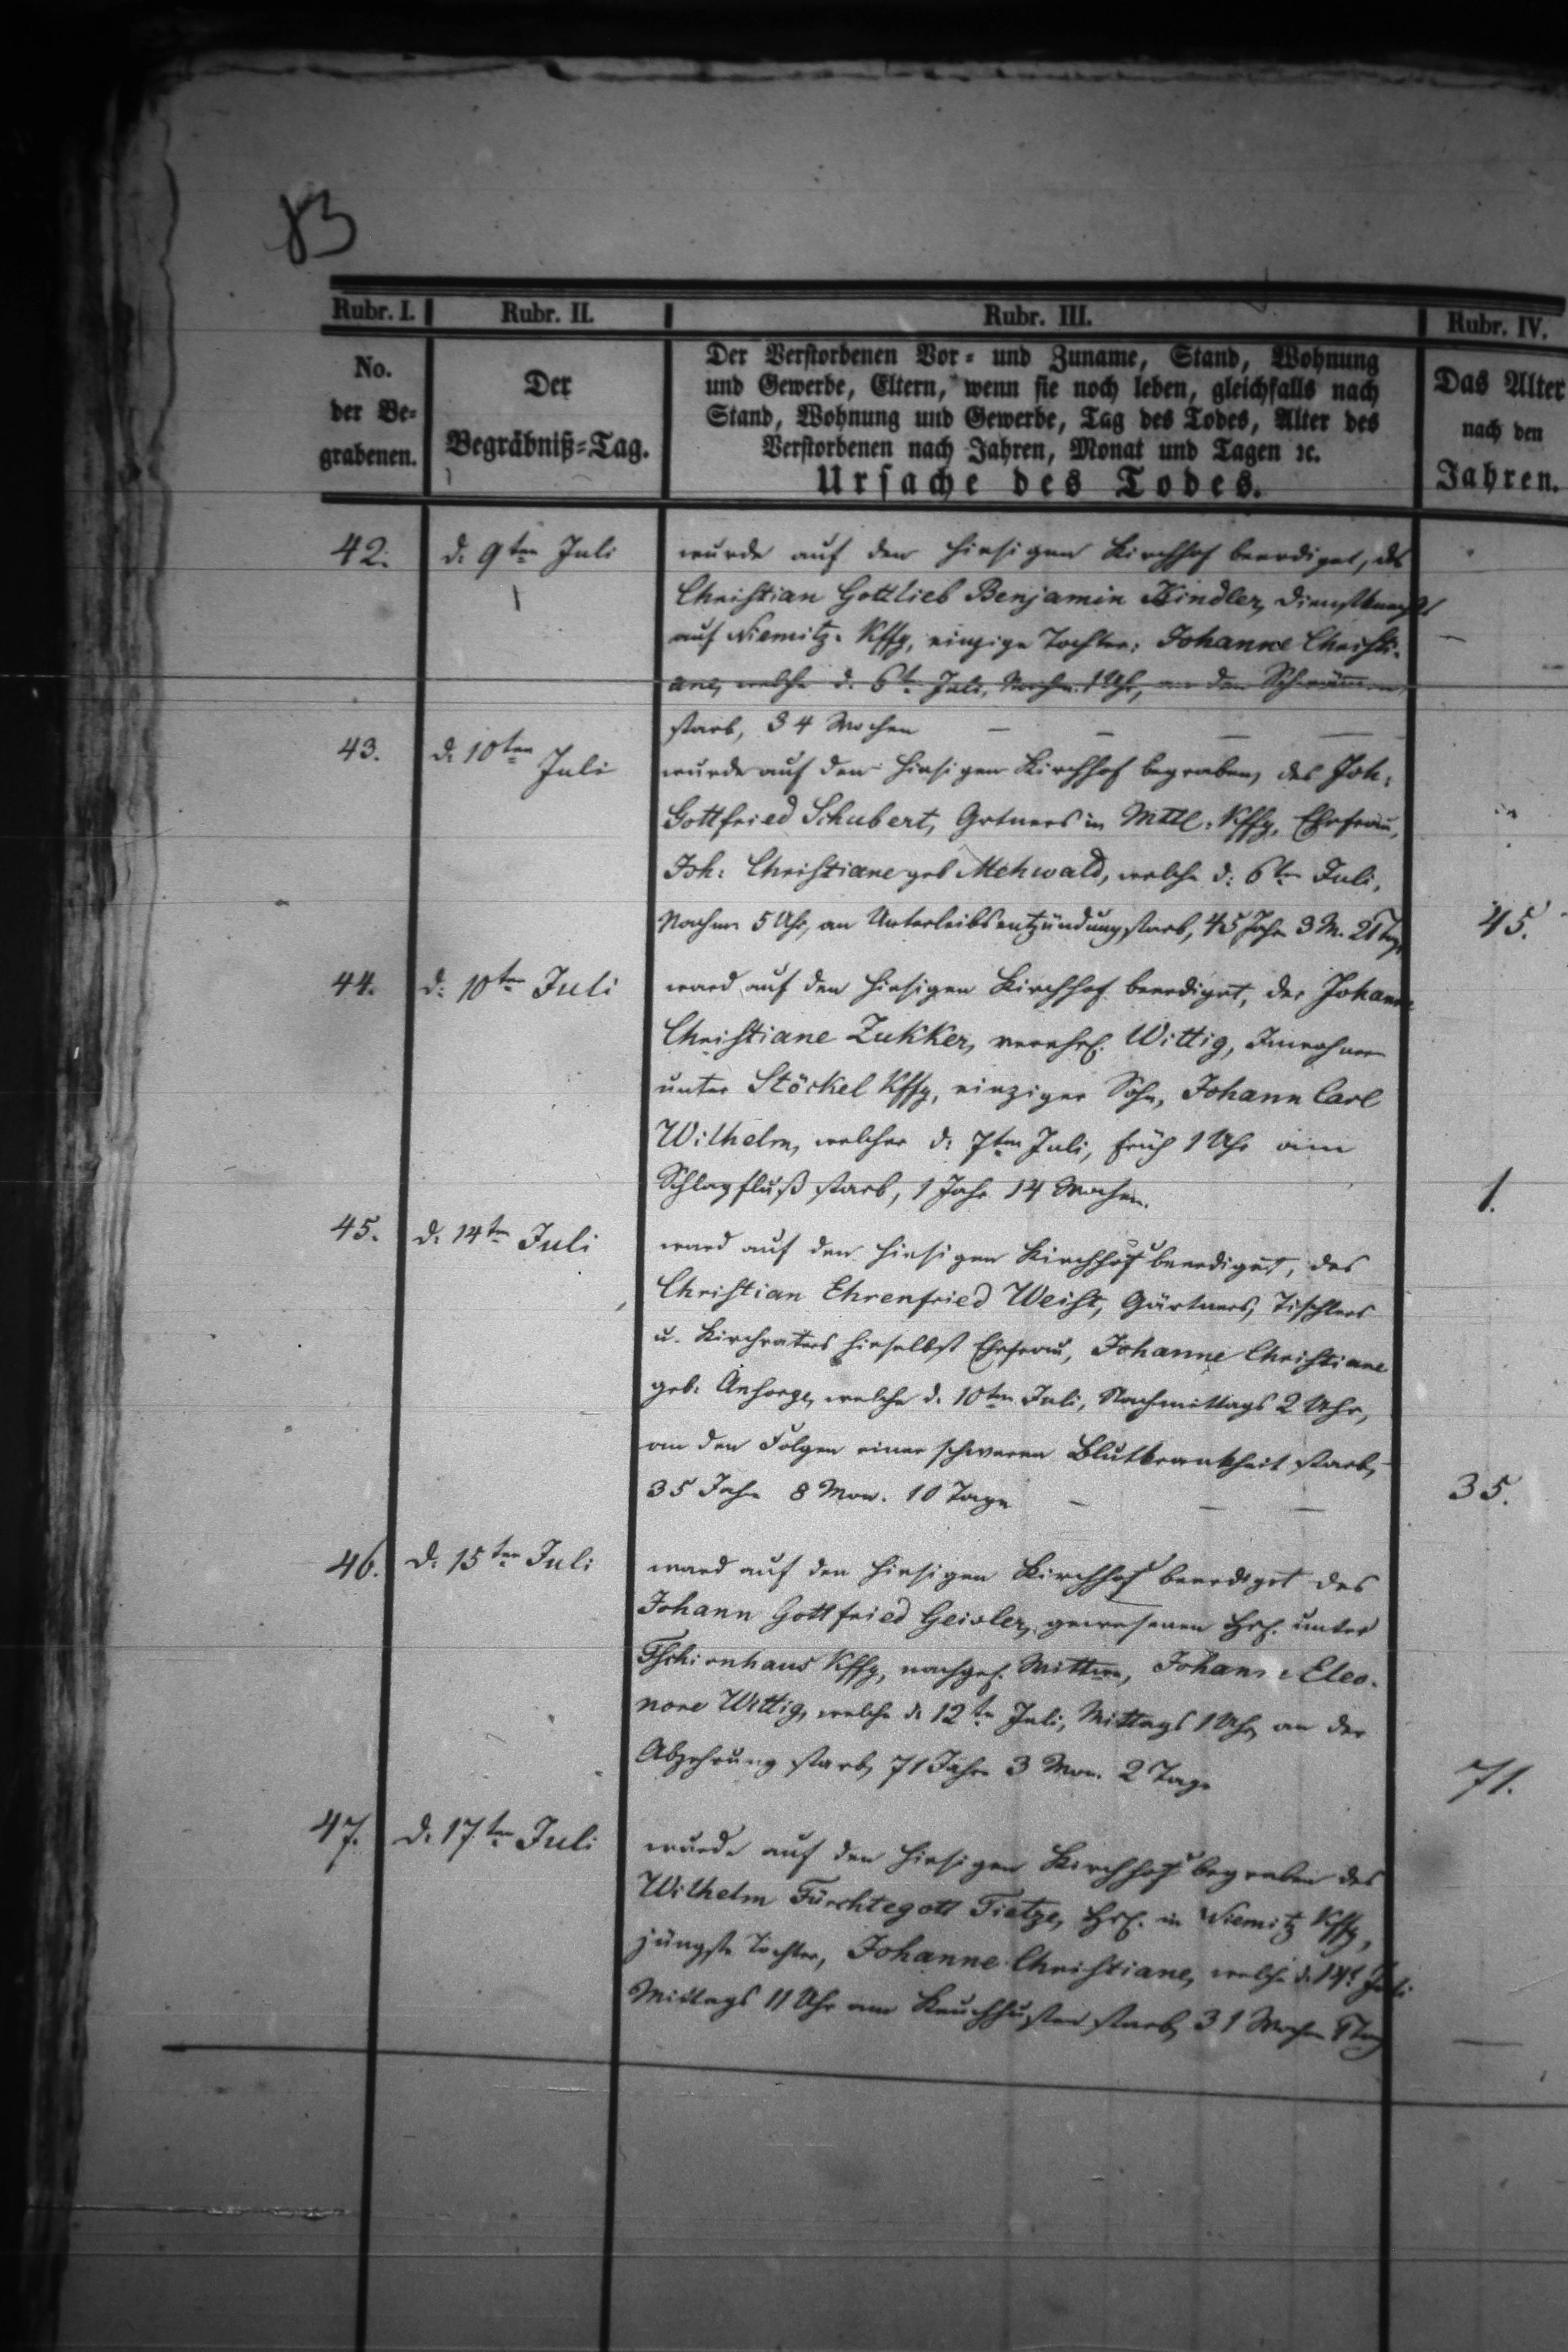 83
Rubr. I. Rubr. II. Rubr. III. Rubr. IV.
No.
der Be-
grabenen.
Der
Begräbniß-Tag.
Der Verstorbenen Vor- und Zuname, Stand, Wohnung
und Gewerbe, Eltern, wenn sie noch leben, gleichfalls nach
Stand, Wohnung und Gewerbe, Tag des Todes, Alter des
Verstorbenen nach Jahren, Monat und Tagen ꝛc.
Ursache des Todes.
Das Alter
nach den
Jahren.
42. d. 9ten Juli wurde auf den hiesigen Kirchhof beerdiget, des
Christian Gottlieb Benjamin Kindler, Dienstknechts
auf Niemitz-Kffg, einzige Tochter: Johanne Christi-
ane, welche d. 6t. Juli, Nachm. 1 Uhr, an den
starb, 34 Wochen — — — —
43. d. 10ten Juli wurde auf den hiesigen Kirchhof begraben, des Joh:
Gottfried Schubert, Grtners in Mttl: Kffg, Ehefrau,
Joh: Christiane geb Mehwald, welche d: 6ten Juli,
Nachm 5 Uhr, an Unterleibsentzündung starb, 45 Jahr 3 M. 21 Tage 45.
44. d: 10ten Juli ward auf den hiesigen Kirchhof beerdiget, der Johanne
Christiane Zukker, verehl. Wittig, Inwohnern
unter Stöckel Kffg, einziger Sohn, Johann Carl
Wilhelm, welcher d: 7ten Juli, früh 1 Uhr am
Schlagfluß starb, 1 Jahr 14 Wochen. 1.
45. d. 14ten Juli ward auf den hiesigen Kirchhof beerdiget, des
Christian Ehrenfried Weist, Gärtners, Tischlers
u. Kirchvaters hieselbst Ehefrau, Johanne Christiane
geb. Ansorge, welche d. 10ten Juli, Nachmittags 2 Uhr,
an den Folgen einer schweren Blutkrankheit starb,
35 Jahr 8 Mon. 10 Tage — — — 35.
46. d. 15ten Juli ward auf den hiesigen Kirchhof beerdiget des
Johann Gottfried Geisler, gewesenen Hsl. unter
Tschirnhaus Kffg, nachgel. Wittwe, Johanne Eleo-
nore Wittig, welche d. 12te Juli, Mittags 1 Uhr, an der
Abzehrung starb, 71 Jahr 3 Mon. 2 Tage 71.
47. d. 17ten Juli wurde auf den hiesigen Kirchhof begraben des
Wilhelm Fürchtegott Tietze, Hsl. in Niemitz Kffg,
jüngste Tochter, Johanne Christiane, welche d. 14t Juli
Mittags 11 Uhr am Keuchhusten starb, 31 Wochen —